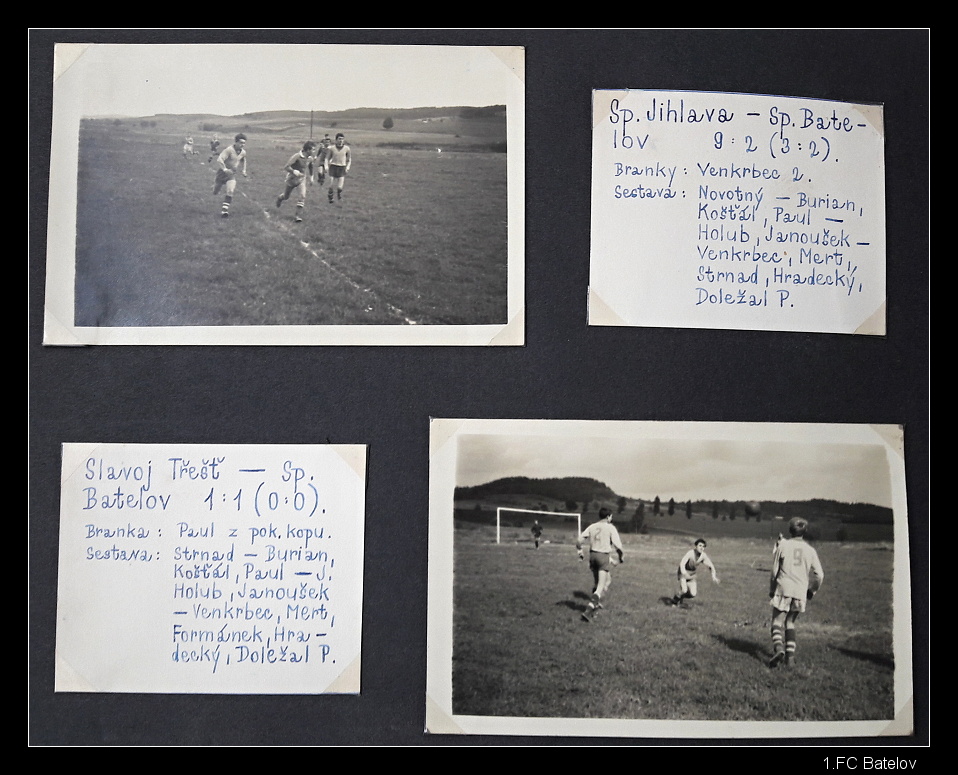 Sp. Jihlava – Sp. Bate-
lov 9:2 (3:2).
Branky: Venkrbec 2.
Sestava: Novotný – Burian,
Košťál, Paul –
Holub, Janoušek –
Venkrbec, Mert,
Strnad, Hradecký,
Doležal P.
Slavoj Třešť – Sp.
Batelov 1:1 (0:0).
Branka: Paul z pok. kopu.
Sestava: Strnad – Burian,
Košťál, Paul – J.
Holub, Janoušek
– Venkrbec, Mert,
Formánek, Hra-
decký, Doležal P.
2
9
1.FC Batelov